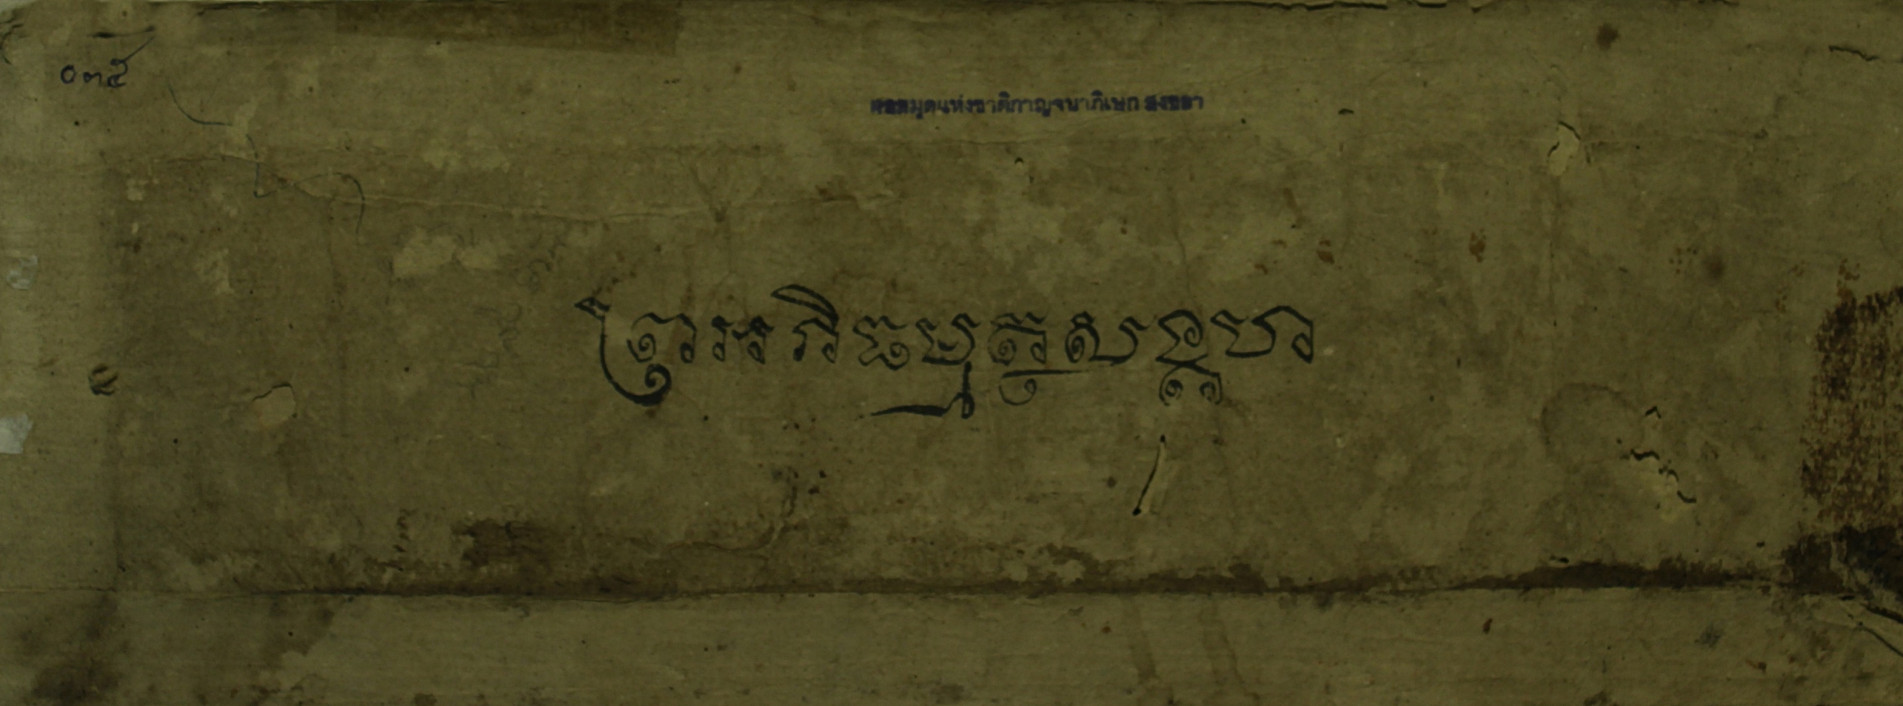 ๐๓๕
หอสมุดแห่งชาติกาญจนาภิเษก สงขลา
ព្រាអភិធម្មត្ថសង្គហា